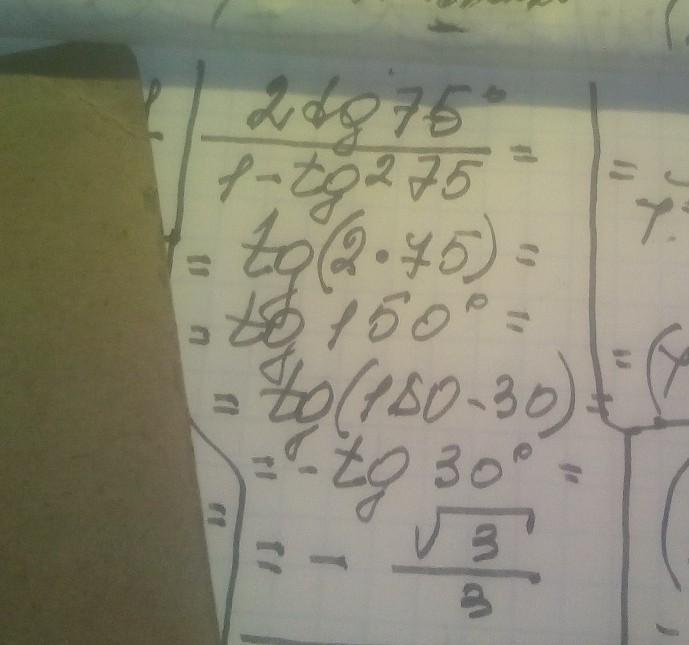 2tg75°
1-tg²75 =
= tg(2·75) =
= tg 150° =
= tg(180-30) =
= -tg 30° =
= - √3
3